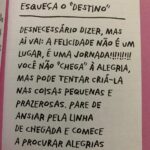 ESQUEÇA O "DESTINO"
DESNECESSÁRIO DIZER, MAS
AÍ VAI: A FELICIDADE NÃO É UM
LUGAR, É UMA JORNADA!!!!!!!!
VOCÊ NÃO "CHEGA" À ALEGRIA,
MAS PODE TENTAR CRIÁ-LA
NAS COISAS PEQUENAS E
PRAZEROSAS. PARE DE
ANSIAR PELA LINHA
DE CHEGADA E COMECE
A PROCURAR ALEGRIAS